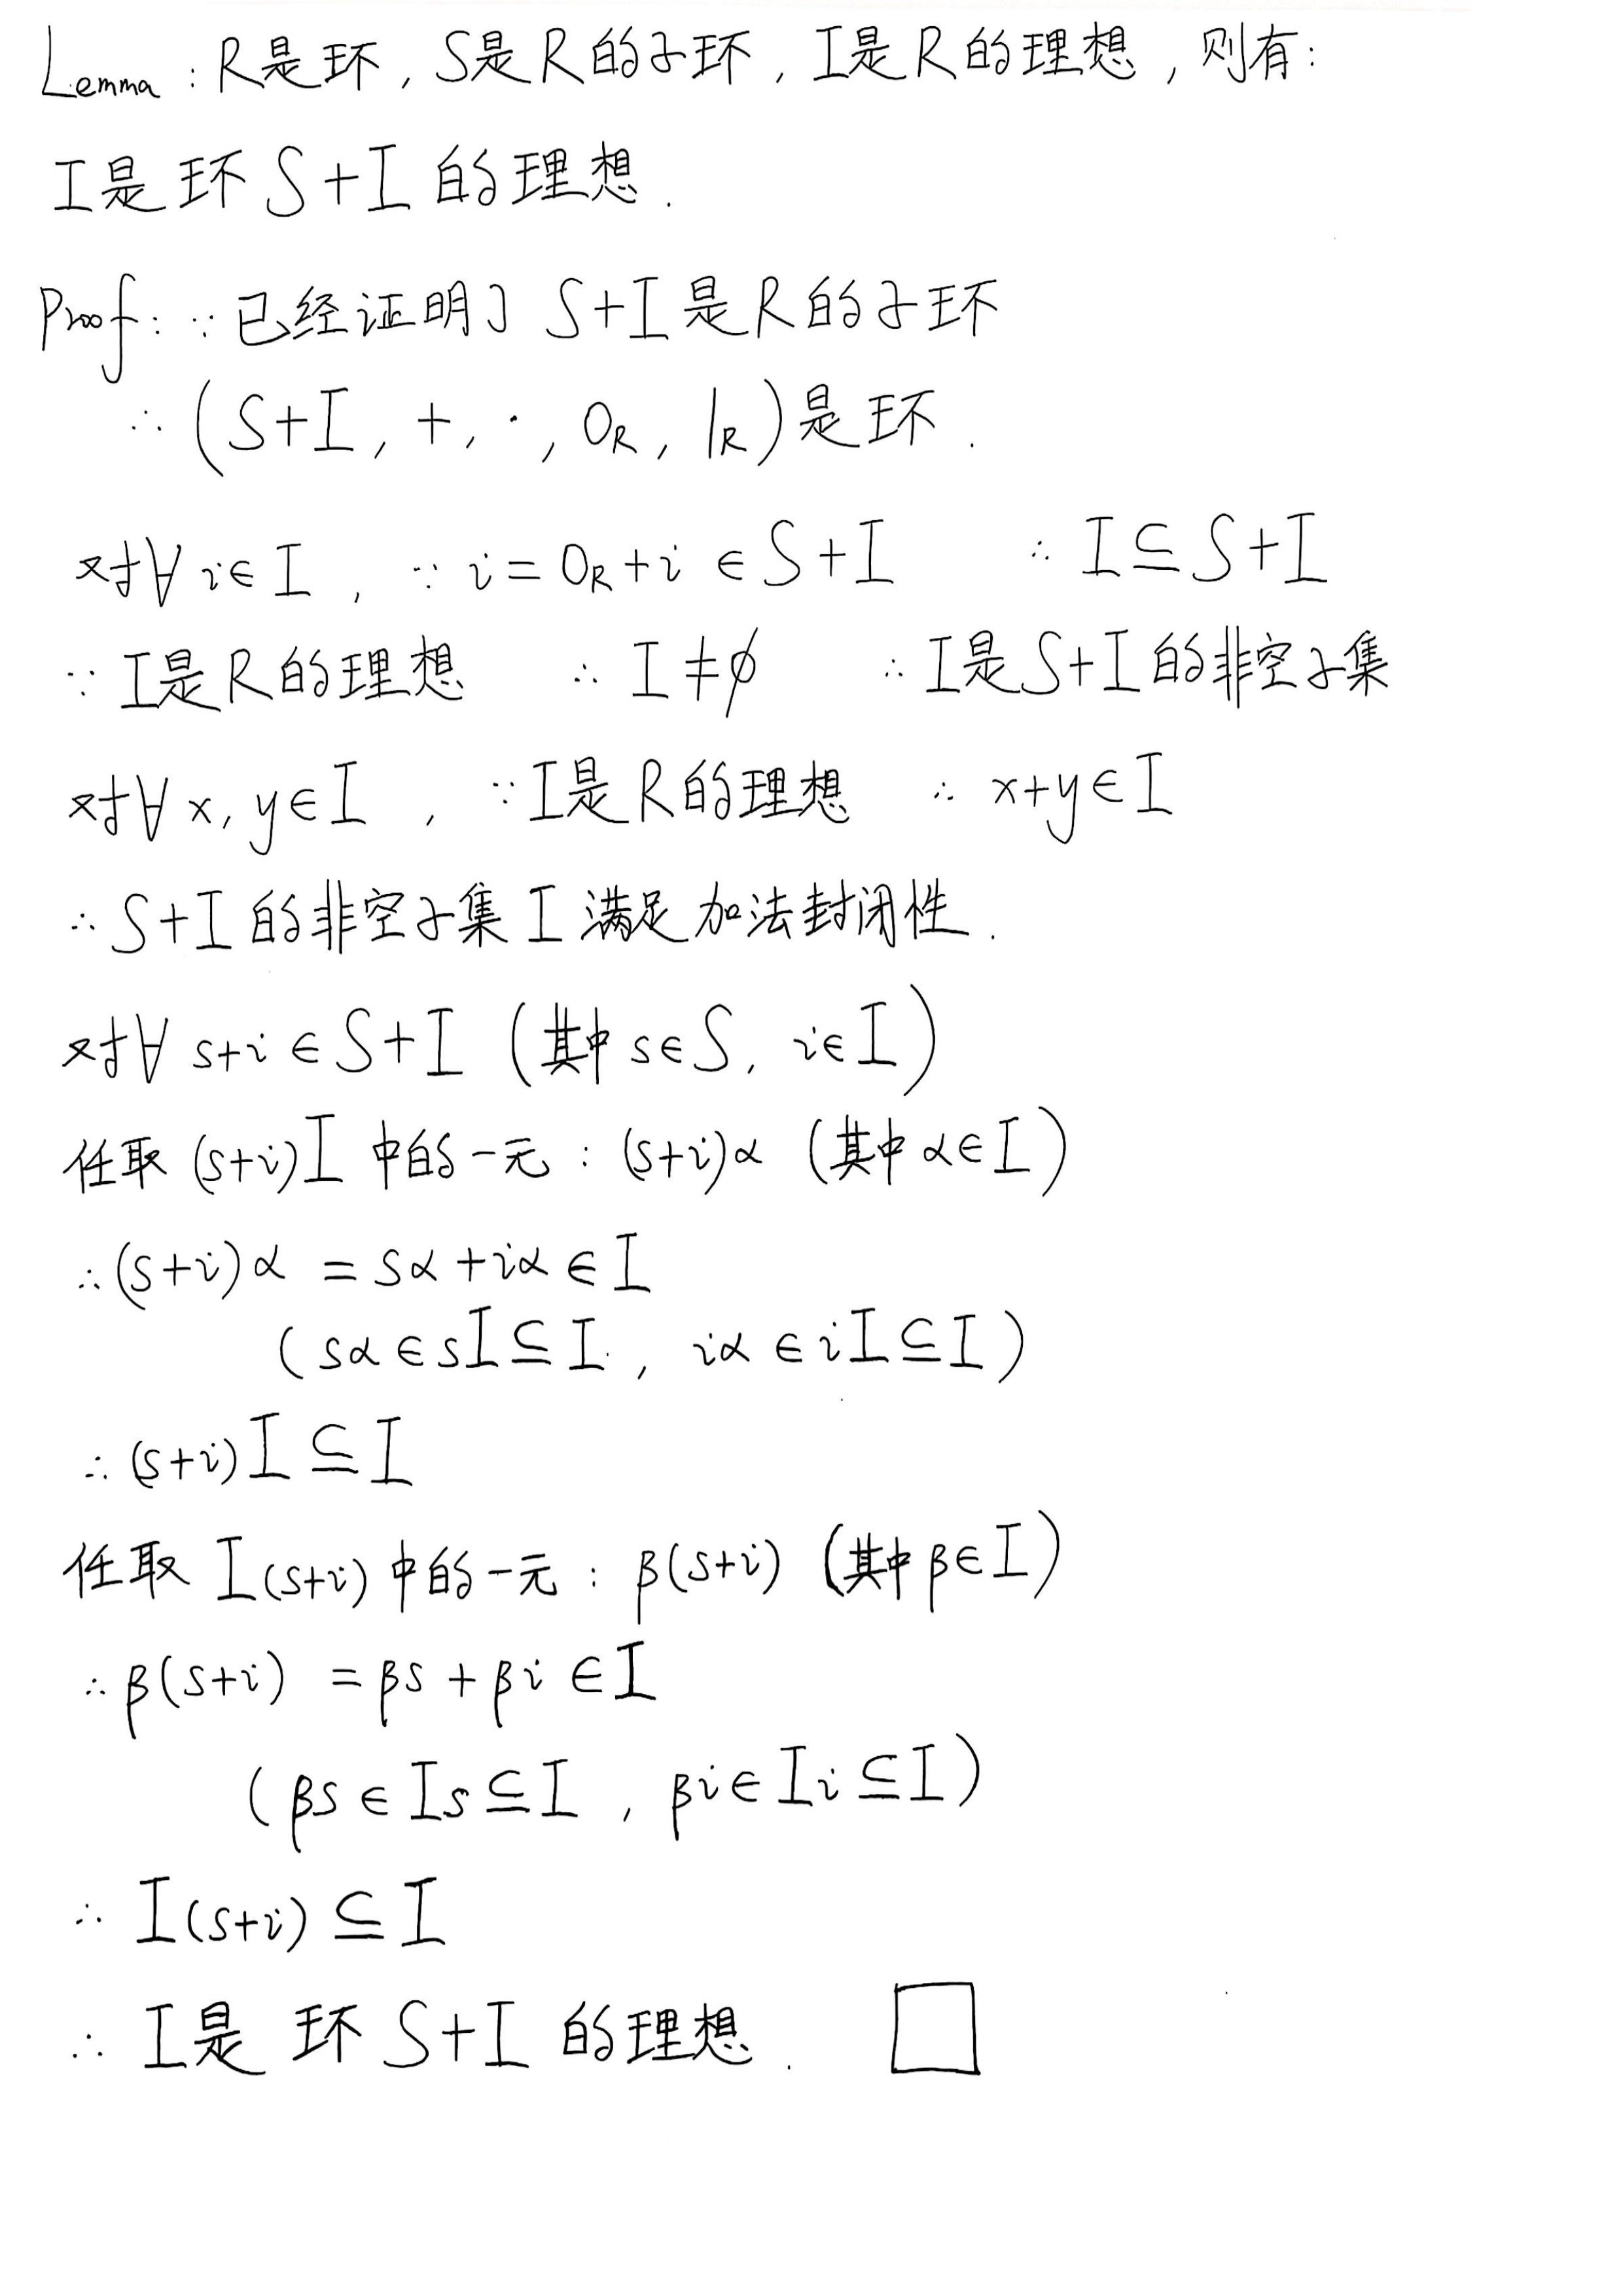 Lemma：R是环，S是R的子环，I是R的理想，则有：
I是环S+I的理想．
Proof：∵已经证明了 S+I是R的子环
∴ (S+I, +, ·, 0_R, 1_R)是环．
对∀i∈I，∵ i = 0_R + i ∈ S+I ∴ I⊆S+I
∵ I是R的理想 ∴ I≠∅ ∴ I是S+I的非空子集
对∀x, y∈I，∵ I是R的理想 ∴ x+y∈I
∴ S+I的非空子集I满足加法封闭性．
对∀ s+i∈S+I (其中s∈S, i∈I)
任取 (s+i)I 中的一元：(s+i)α (其中α∈I)
∴ (s+i)α = sα + iα ∈ I
(sα∈sI⊆I, iα∈iI⊆I)
∴ (s+i)I⊆I
任取 I(s+i) 中的一元：β(s+i) (其中β∈I)
∴ β(s+i) = βs + βi ∈ I
(βs∈Is⊆I, βi∈Ii⊆I)
∴ I(s+i)⊆I
∴ I是 环S+I 的理想． □